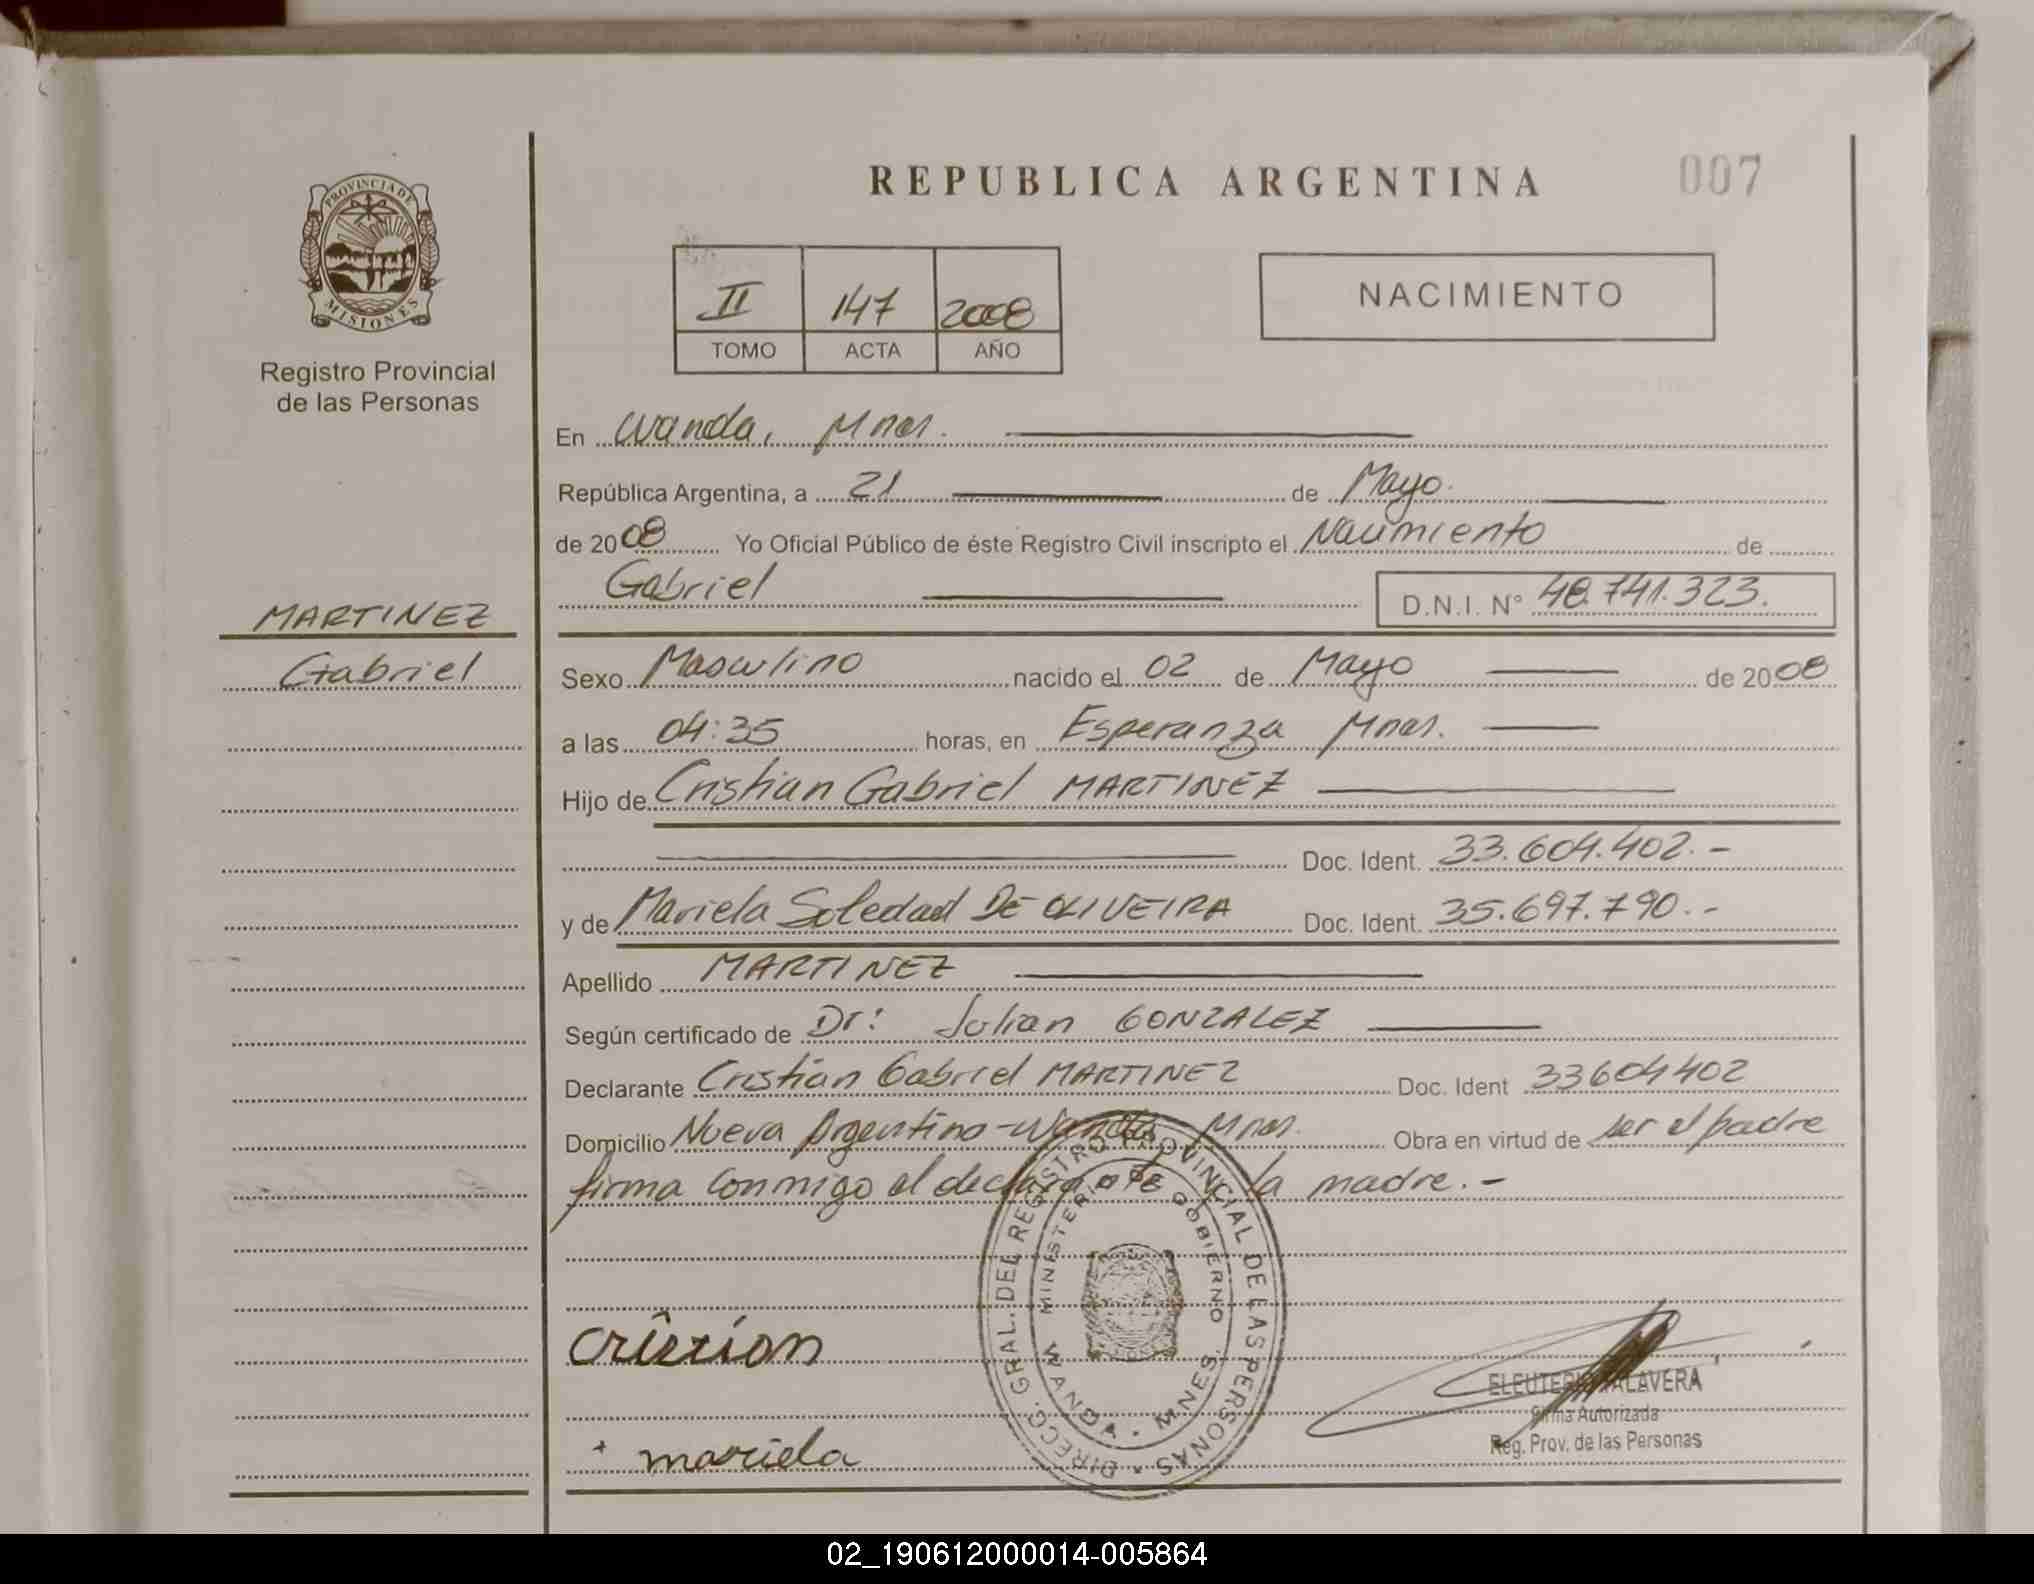 REPUBLICA ARGENTINA
007
PROVINCIA DE
MISIONES
Registro Provincial
de las Personas
II 147 2008
TOMO ACTA AÑO
NACIMIENTO
En Wanda, Mnes.
República Argentina, a 21 de Mayo.
de 2008 Yo Oficial Público de éste Registro Civil inscripto el Nacimiento de
Gabriel D.N.I. Nº 48.741.323.
MARTINEZ
Gabriel
Sexo Masculino nacido el 02 de Mayo de 2008
a las 04:35 horas, en Esperanza Mnes.
Hijo de Cristian Gabriel MARTINEZ
Doc. Ident. 33.604.402.-
y de Mariela Soledad DE OLIVEIRA Doc. Ident. 35.697.790.-
Apellido MARTINEZ
Según certificado de Dr: Julian GONZALEZ
Declarante Cristian Gabriel MARTINEZ Doc. Ident 33604402
Domicilio Nueva Argentina-Wanda Mnes. Obra en virtud de ser el padre
firma conmigo el declarante y la madre.-
DIRECC. GRAL. DEL REGISTRO PROVINCIAL DE LAS PERSONAS
MINISTERIO DE GOBIERNO
WANDA - MNES.
cristian
mariela
ELEUTERIO TALAVERA
Firma Autorizada
Reg. Prov. de las Personas
02_190612000014-005864